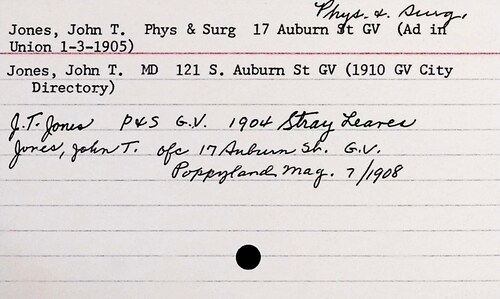 Phys. & Surg.
Jones, John T.  Phys & Surg  17 Auburn St GV  (Ad in
Union 1-3-1905)
Jones, John T.  MD  121 S. Auburn St GV (1910 GV City
Directory)
J.T. Jones  P&S  G.V.  1904 Stray Leaves
Jones, John T.  ofc 17 Auburn St.  G.V.
Poppyland Mag. 7/1908